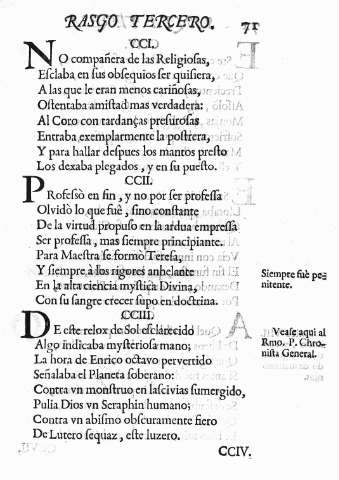 RASGO TERCERO. 71
CCI.
NO compañera de las Religiosas,
Esclaba en sus obsequios ser quisiera,
A las que le eran menos cariñosas,
Ostentaba amistad mas verdadera:
Al Coro con tardanças presurosas
Entraba exemplarmente la postrera,
Y para hallar despues los mantos presto
Los dexaba plegados, y en su puesto.
CCII.
PRofessò en fin, y no por ser professa
Olvidò lo que fuê, sino constante
De la virtud propuso en la ardua empressa
Ser professa, mas siempre principiante.
Para Maestra se formò Teresa,
Y siempre à los rigores anhelante
En la alta ciencia mystica Divina,
Con su sangre crecer supo en doctrina.
Siempre fuè penitente.
CCIII.
DE este relox de Sol esclarecido
Algo indicaba mysteriosa mano;
La hora de Enrico octavo pervertido
Señalaba el Planeta soberano:
Contra vn monstruo en lascivias sumergido,
Pulia Dios vn Seraphin humano;
Contra vn abismo obscuramente fiero
De Lutero sequaz, este luzero.
Vease aqui al
Rmo. P. Chro-
nista General.
CCIV.